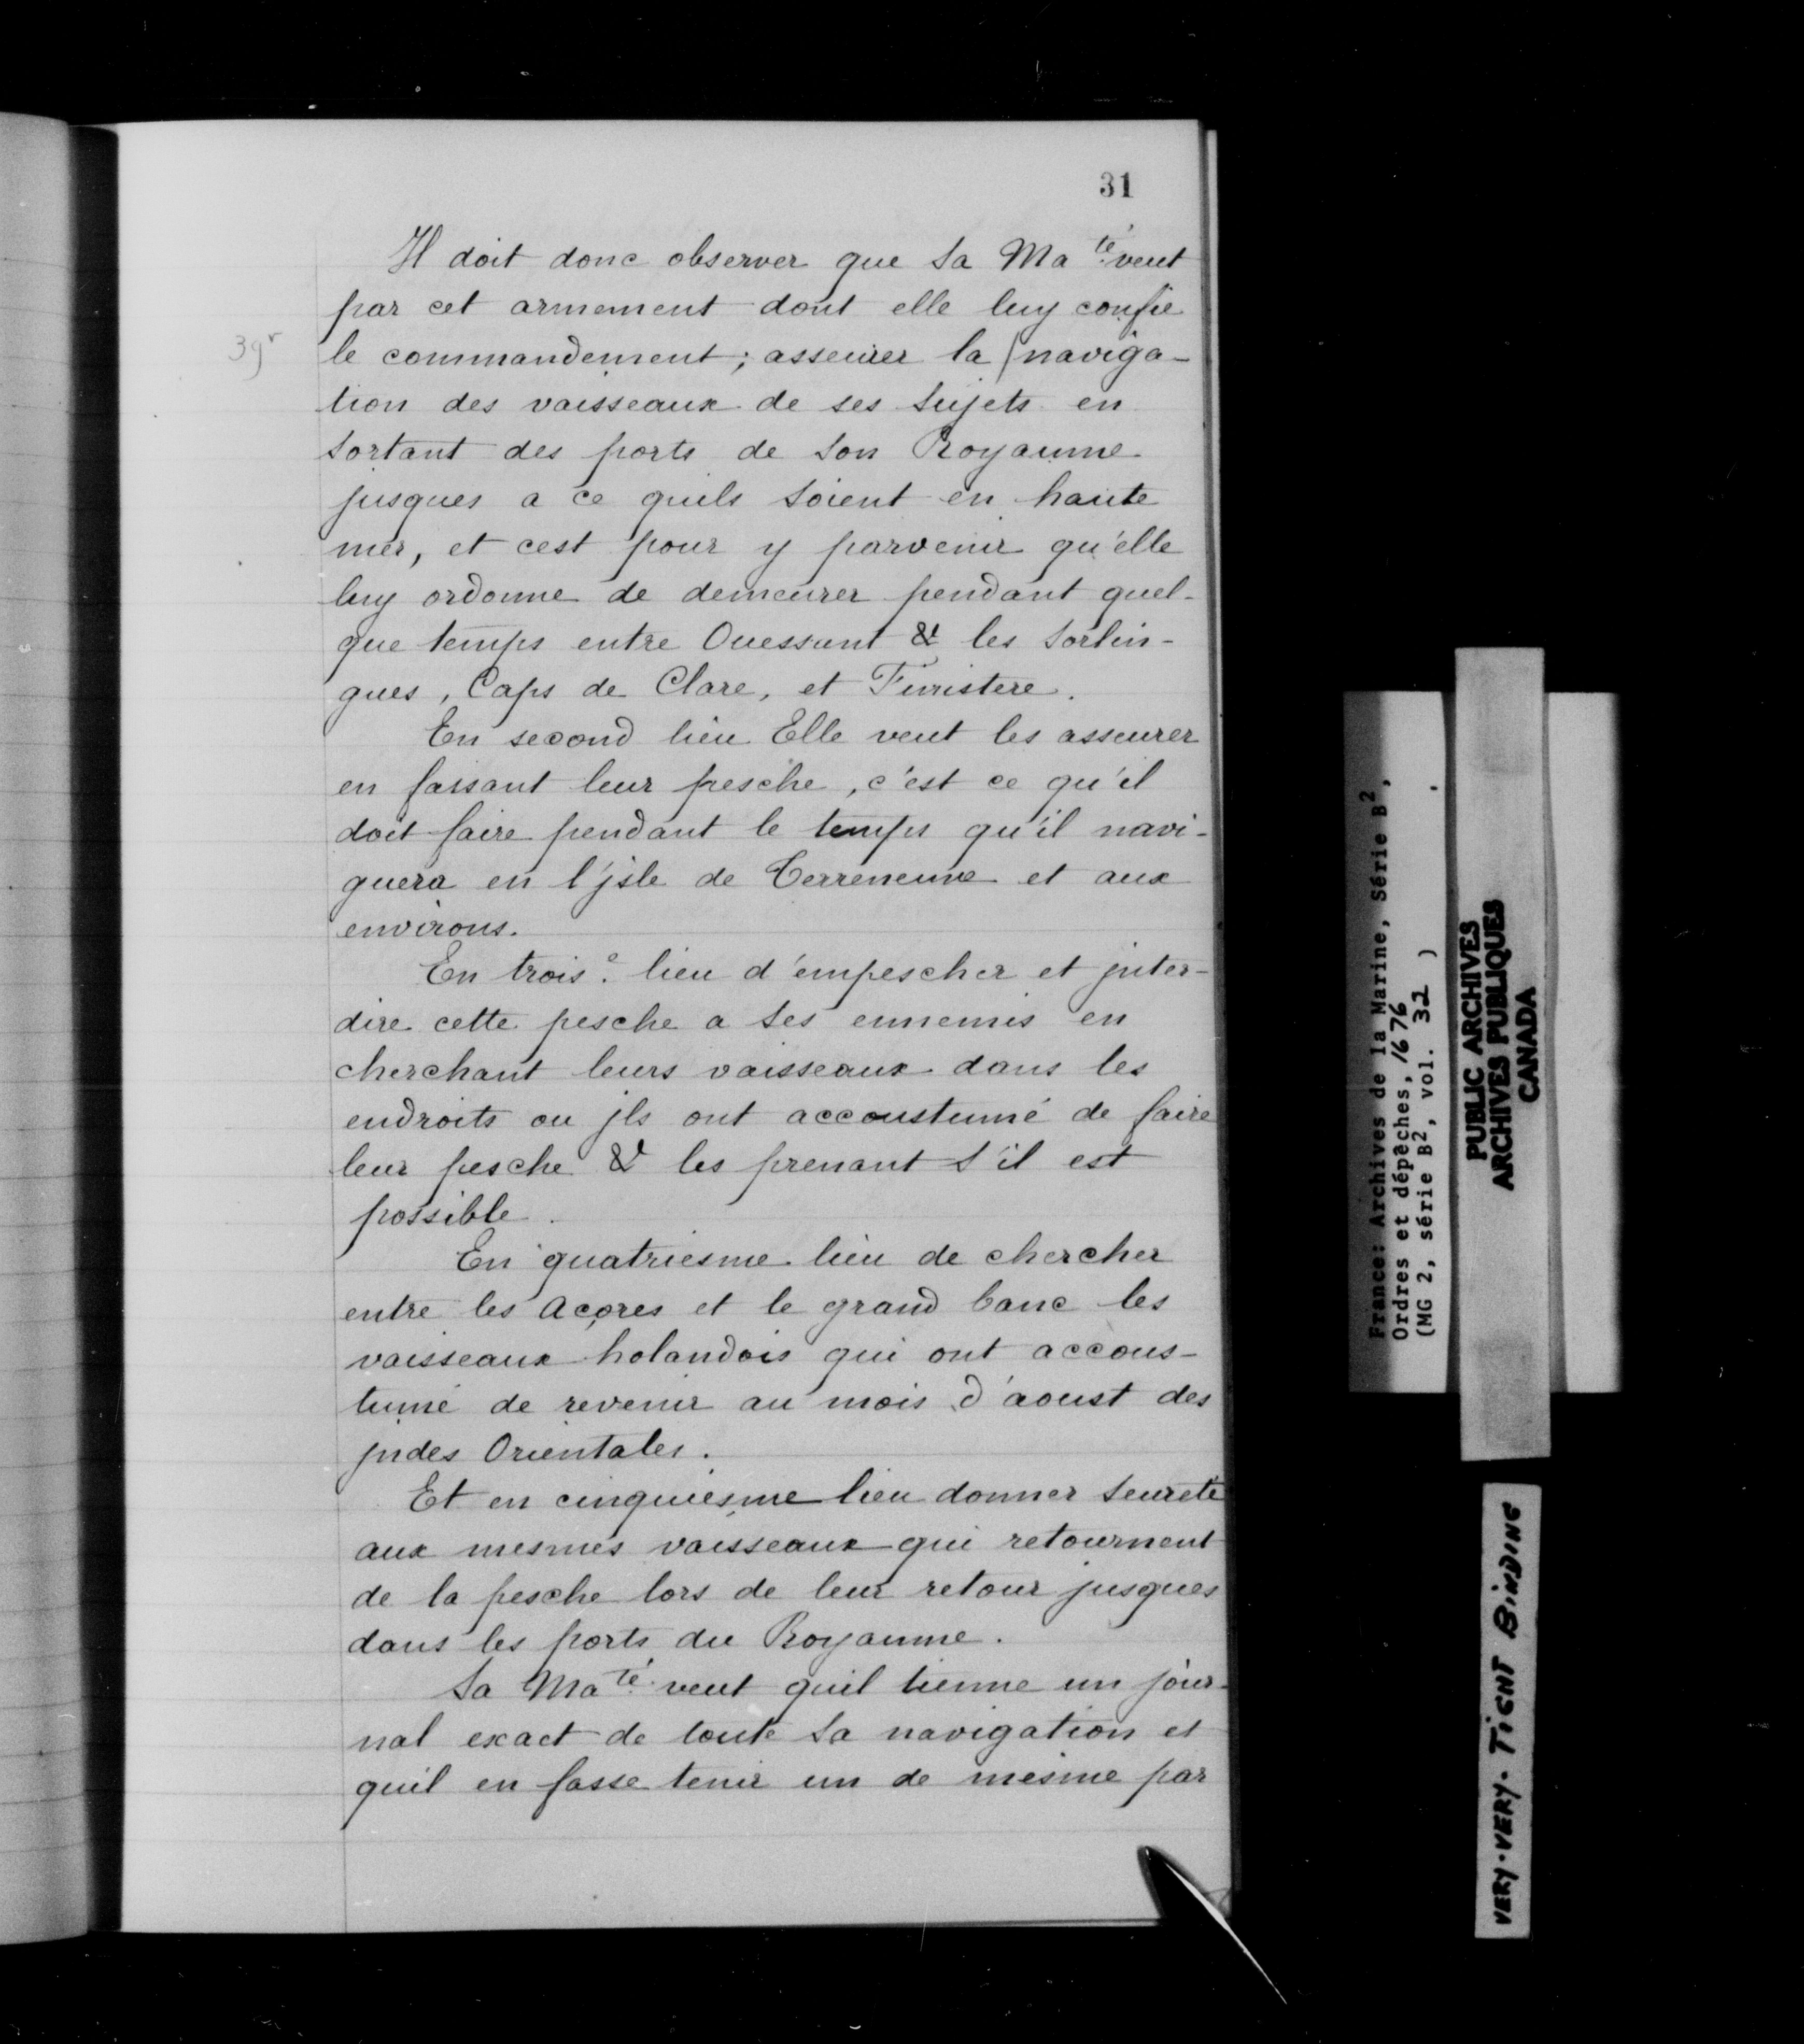 31
Il doit donc observer que sa Ma.té veut
par cet armement dont elle luy confie
39r
le commandement; asseurer la | naviga-
tion des vaisseaux de ses sujets en
sortant des ports de son Royaume
jusques a ce quils soient en haute
mer, et cest pour y parvenir qu'elle
luy ordonne de demeurer pendant quel-
que temps entre Ouessant & les Sorlin-
gues, Caps de Clare, et Finistere.
En second lieu Elle veut les asseurer
en faisant leur pesche, c'est ce qu'il
doit faire pendant le temps qu'il navi-
guera en l'jsle de Terreneuve et aux
environs.
En trois.e lieu d'empescher et jnter-
dire cette pesche a ses ennemis en
cherchant leurs vaisseaux dans les
endroits ou jls ont accoustumé de faire
leur pesche & les prenant s'il est
possible.
En quatriesme lieu de chercher
entre les Açores et le grand banc les
vaisseaux holandois qui ont accous-
tumé de revenir au mois d'aoust des
jndes Orientales.
Et en cinquiesme lieu donner seureté
aux mesmes vaisseaux qui retournent
de la pesche lors de leur retour jusques
dans les ports du Royaume.
Sa Ma.té veut quil tienne un jour-
nal exact de toute sa navigation et
quil en fasse tenir un de mesme par
France: Archives de la Marine, Série B2,
Ordres et dépêches, 1676 .
(MG 2, série B2, vol. 32 )
PUBLIC ARCHIVES
ARCHIVES PUBLIQUES
CANADA
VERY-VERY-TIGHT BINDING